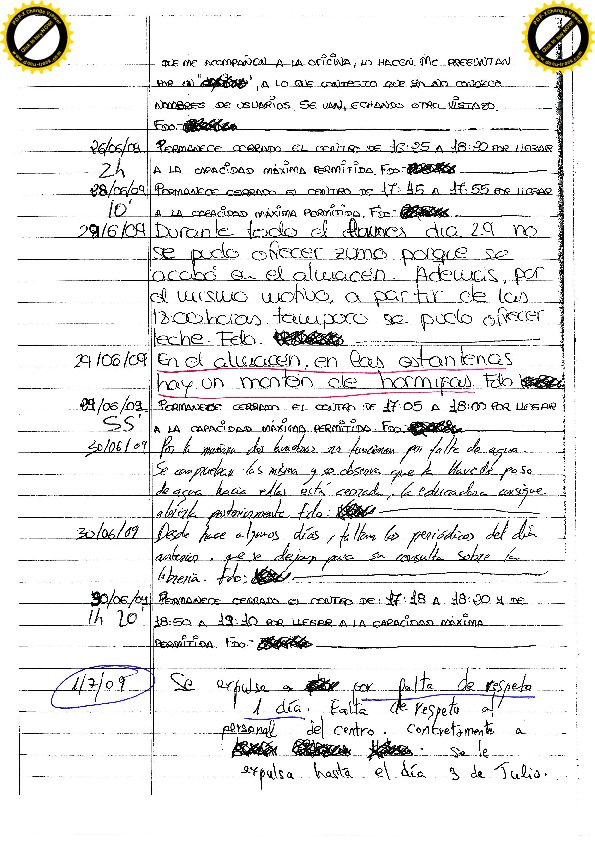 QUE ME ACOMPAÑEN A LA OFICINA, LO HACEN. ME PREGUNTAN
POR UN " ", A LO QUE CONTESTO QUE YO NO CONOZCO
NOMBRES DE USUARIOS. SE VAN, ECHANDO OTRO VISTAZO.
FDO:
26/06/09 PERMANECE CERRADO EL CENTRO DE 16:25 A 18:20 POR LLEGAR
2h A LA CAPACIDAD MÁXIMA PERMITIDA. FDO:
28/06/09 PERMANECE CERRADO EL CENTRO DE 17:45 A 17:55 POR LLEGAR
10' A LA CAPACIDAD MÁXIMA PERMITIDA. FDO:
29/6/09 Durante todo el lunes dia 29 no
se pudo ofrecer zumo porque se
acabó en el almacén. Además, por
el mismo motivo, a partir de las
18:00 horas tampoco se pudo ofrecer
leche. Fdo.
29/06/09 En el almacén, en las estanterias
hay un montón de hormigas. Fdo:
29/06/09 PERMANECE CERRADO EL CENTRO DE 17:05 A 18:00 POR LLEGAR
55' A LA CAPACIDAD MÁXIMA PERMITIDA. FDO:
30/06/09 Por la mañana dos lavadoras no funcionan por falta de agua.
Se comprueban las mismas y se observa que la llave de paso
de agua hacia ellas está cerrada, la educadora consigue
abrirla posteriormente. Fdo:
30/06/09 Desde hace algunos días, faltan los periódicos del día
anterior, que se dejan para su consulta sobre la
librería. Fdo:
30/06/09 PERMANECE CERRADO EL CENTRO DE: 17:18 A 18:20 Y DE
1h 20' 18:50 A 19:10 POR LLEGAR A LA CAPACIDAD MÁXIMA
PERMITIDA. FDO:
1/7/09 Se expulsa a por falta de respeto
1 día. Falta de respeto al
personal del centro. Concretamente a
se le
expulsa hasta el día 3 de Julio.